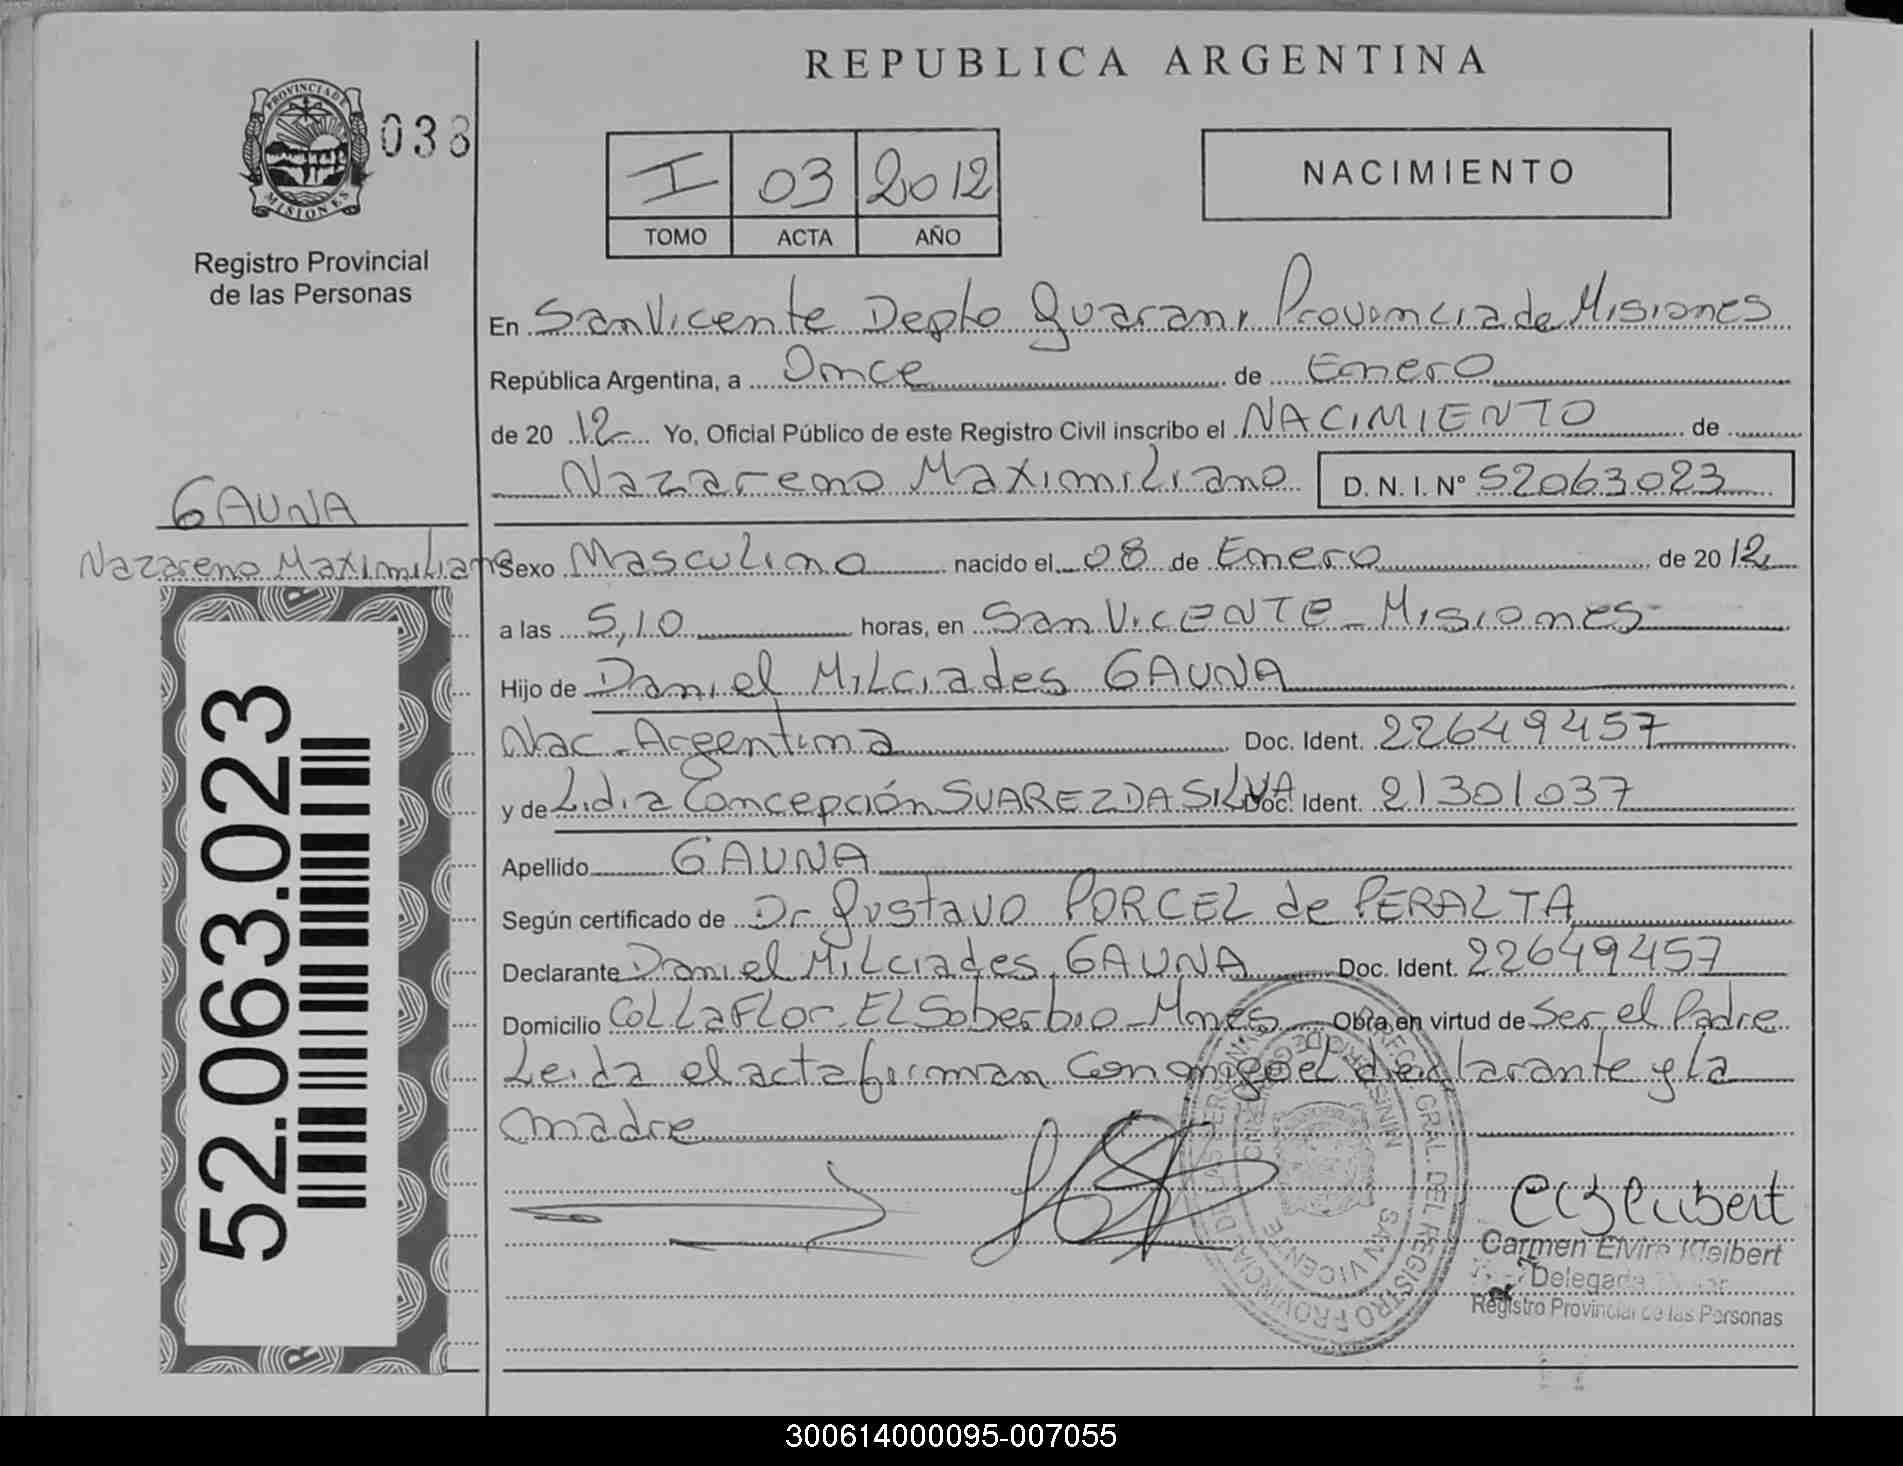 REPUBLICA ARGENTINA
PROVINCIA DE MISIONES
038
Registro Provincial
de las Personas
I 03 2012
TOMO ACTA AÑO
NACIMIENTO
En San Vicente Depto Guarani Provincia de Misiones
República Argentina, a Once de Enero
de 20 12 Yo, Oficial Público de este Registro Civil inscribo el NACIMIENTO de
Nazareno Maximiliano D. N. I. Nº 52063023
GAUNA
Nazareno Maximiliano
Sexo Masculino nacido el 08 de Enero de 20 12
a las 5,10 horas, en San Vicente - Misiones
Hijo de Daniel Milciades GAUNA
Nac. Argentina Doc. Ident. 22649457
y de Lidia Concepción SUAREZ DA SILVA Doc. Ident. 21301037
Apellido GAUNA
Según certificado de Dr Gustavo PORCEL de PERALTA
Declarante Daniel Milciades GAUNA Doc. Ident. 22649457
Domicilio Col La Flor - El Soberbio - Mnes Obra en virtud de Ser el Padre
Leida el acta firman conmigo el declarante y la
madre
52.063.023
SAN VICENTE
Carmen Elvira Kleibert
Delegada
Registro Provincial de las Personas
300614000095-007055